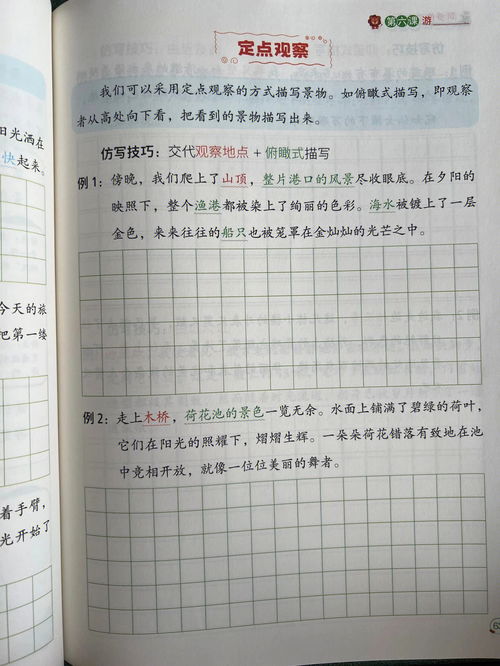 第六课 游
定点观察
我们可以采用定点观察的方式描写景物。如俯瞰式描写，即观察
者从高处向下看，把看到的景物描写出来。
仿写技巧：交代观察地点 + 俯瞰式描写
例 1：傍晚，我们爬上了山顶，整片港口的风景尽收眼底。在夕阳的
映照下，整个渔港都被染上了绚丽的色彩。海水被镀上了一层
金色，来来往往的船只也被笼罩在金灿灿的光芒之中。
例 2：走上木桥，荷花池的景色一览无余。水面上铺满了碧绿的荷叶，
它们在阳光的照耀下，熠熠生辉。一朵朵荷花错落有致地在池
中竞相开放，就像一位位美丽的舞者。
阳光洒在
快起来。
今天的旅
把第一缕
着手臂，
光开始了